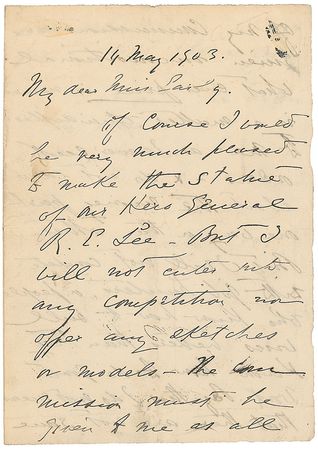 14 May 1903.
My dear Miss Early.
Of Course I would
be very much pleased
to make the Statue
of our Hero General
R. E. Lee - But I
will not enter into
any competition nor
offer any sketches
or models - The com
mission must be
given to me as all